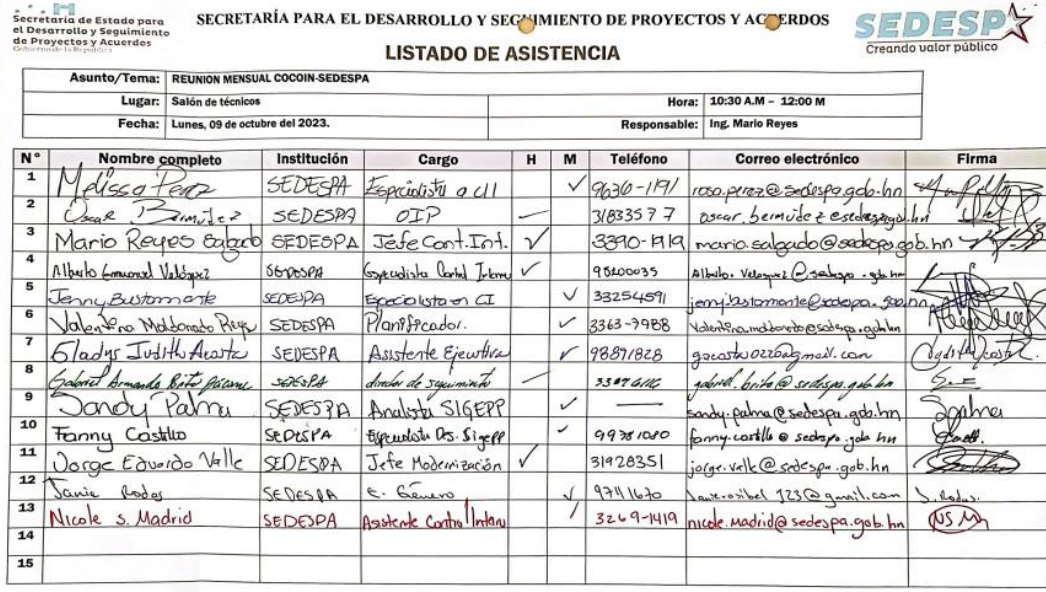 Secretaría de Estado para
el Desarrollo y Seguimiento
de Proyectos y Acuerdos
Gobierno de la República
SECRETARÍA PARA EL DESARROLLO Y SEGUIMIENTO DE PROYECTOS Y ACUERDOS
SEDESPA
Creando valor público
LISTADO DE ASISTENCIA
Asunto/Tema: REUNION MENSUAL COCOIN-SEDESPA
Lugar: Salón de técnicos Hora: 10:30 A.M – 12:00 M
Fecha: Lunes, 09 de octubre del 2023. Responsable: Ing. Mario Reyes
N° Nombre completo Institución Cargo H M Teléfono Correo electrónico Firma
1 Melissa Perez SEDESPA Especialista a CII ✓ 9636-1191 rosa.perez@sedespa.gob.hn
2 Oscar Bermudez SEDESPA OIP 31833577 oscar.bermudez@sedespa.gob.hn
3 Mario Reyes Salgado SEDESPA Jefe Cont. Int. ✓ 3390-1919 mario.salgado@sedespa.gob.hn
4 Alberto Emmanuel Velásquez SEDESPA Especialista Control Interno ✓ 98200035 Alberto.Velasquez@sedespa.gob.hn
5 Jenny Bustamante SEDESPA Especialista en CI ✓ 33254591 jenny.bustamante@sedespa.gob.hn
6 Valentina Maldonado Reyes SEDESPA Planificador. ✓ 3363-9988 Valentina.maldonado@sedespa.gob.hn
7 Gladys Judith Acosta SEDESPA Asistente Ejecutiva ✓ 98891828 gacosta0220@gmail.com
8 Gabriel Armando Brito SEDESPA director de seguimiento gabriel.brito@sedespa.gob.hn
9 Sandy Palma SEDESPA Analista SIGEPP ✓ — sandy.palma@sedespa.gob.hn SPalma
10 Fanny Castillo SEDESPA Especialista Des. Sigepp ✓ 99781080 fanny.castillo@sedespa.gob.hn
11 Jorge Eduardo Valle SEDESPA Jefe Modernización ✓ 31928351 jorge.valle@sedespa.gob.hn
12 Janie Rodas SEDESPA E. Género ✓ 97111670 J. Rodas.
13 Nicole S. Madrid SEDESPA Asistente Control Interno / 3269-1419 nicole.madrid@sedespa.gob.hn NSM
14
15